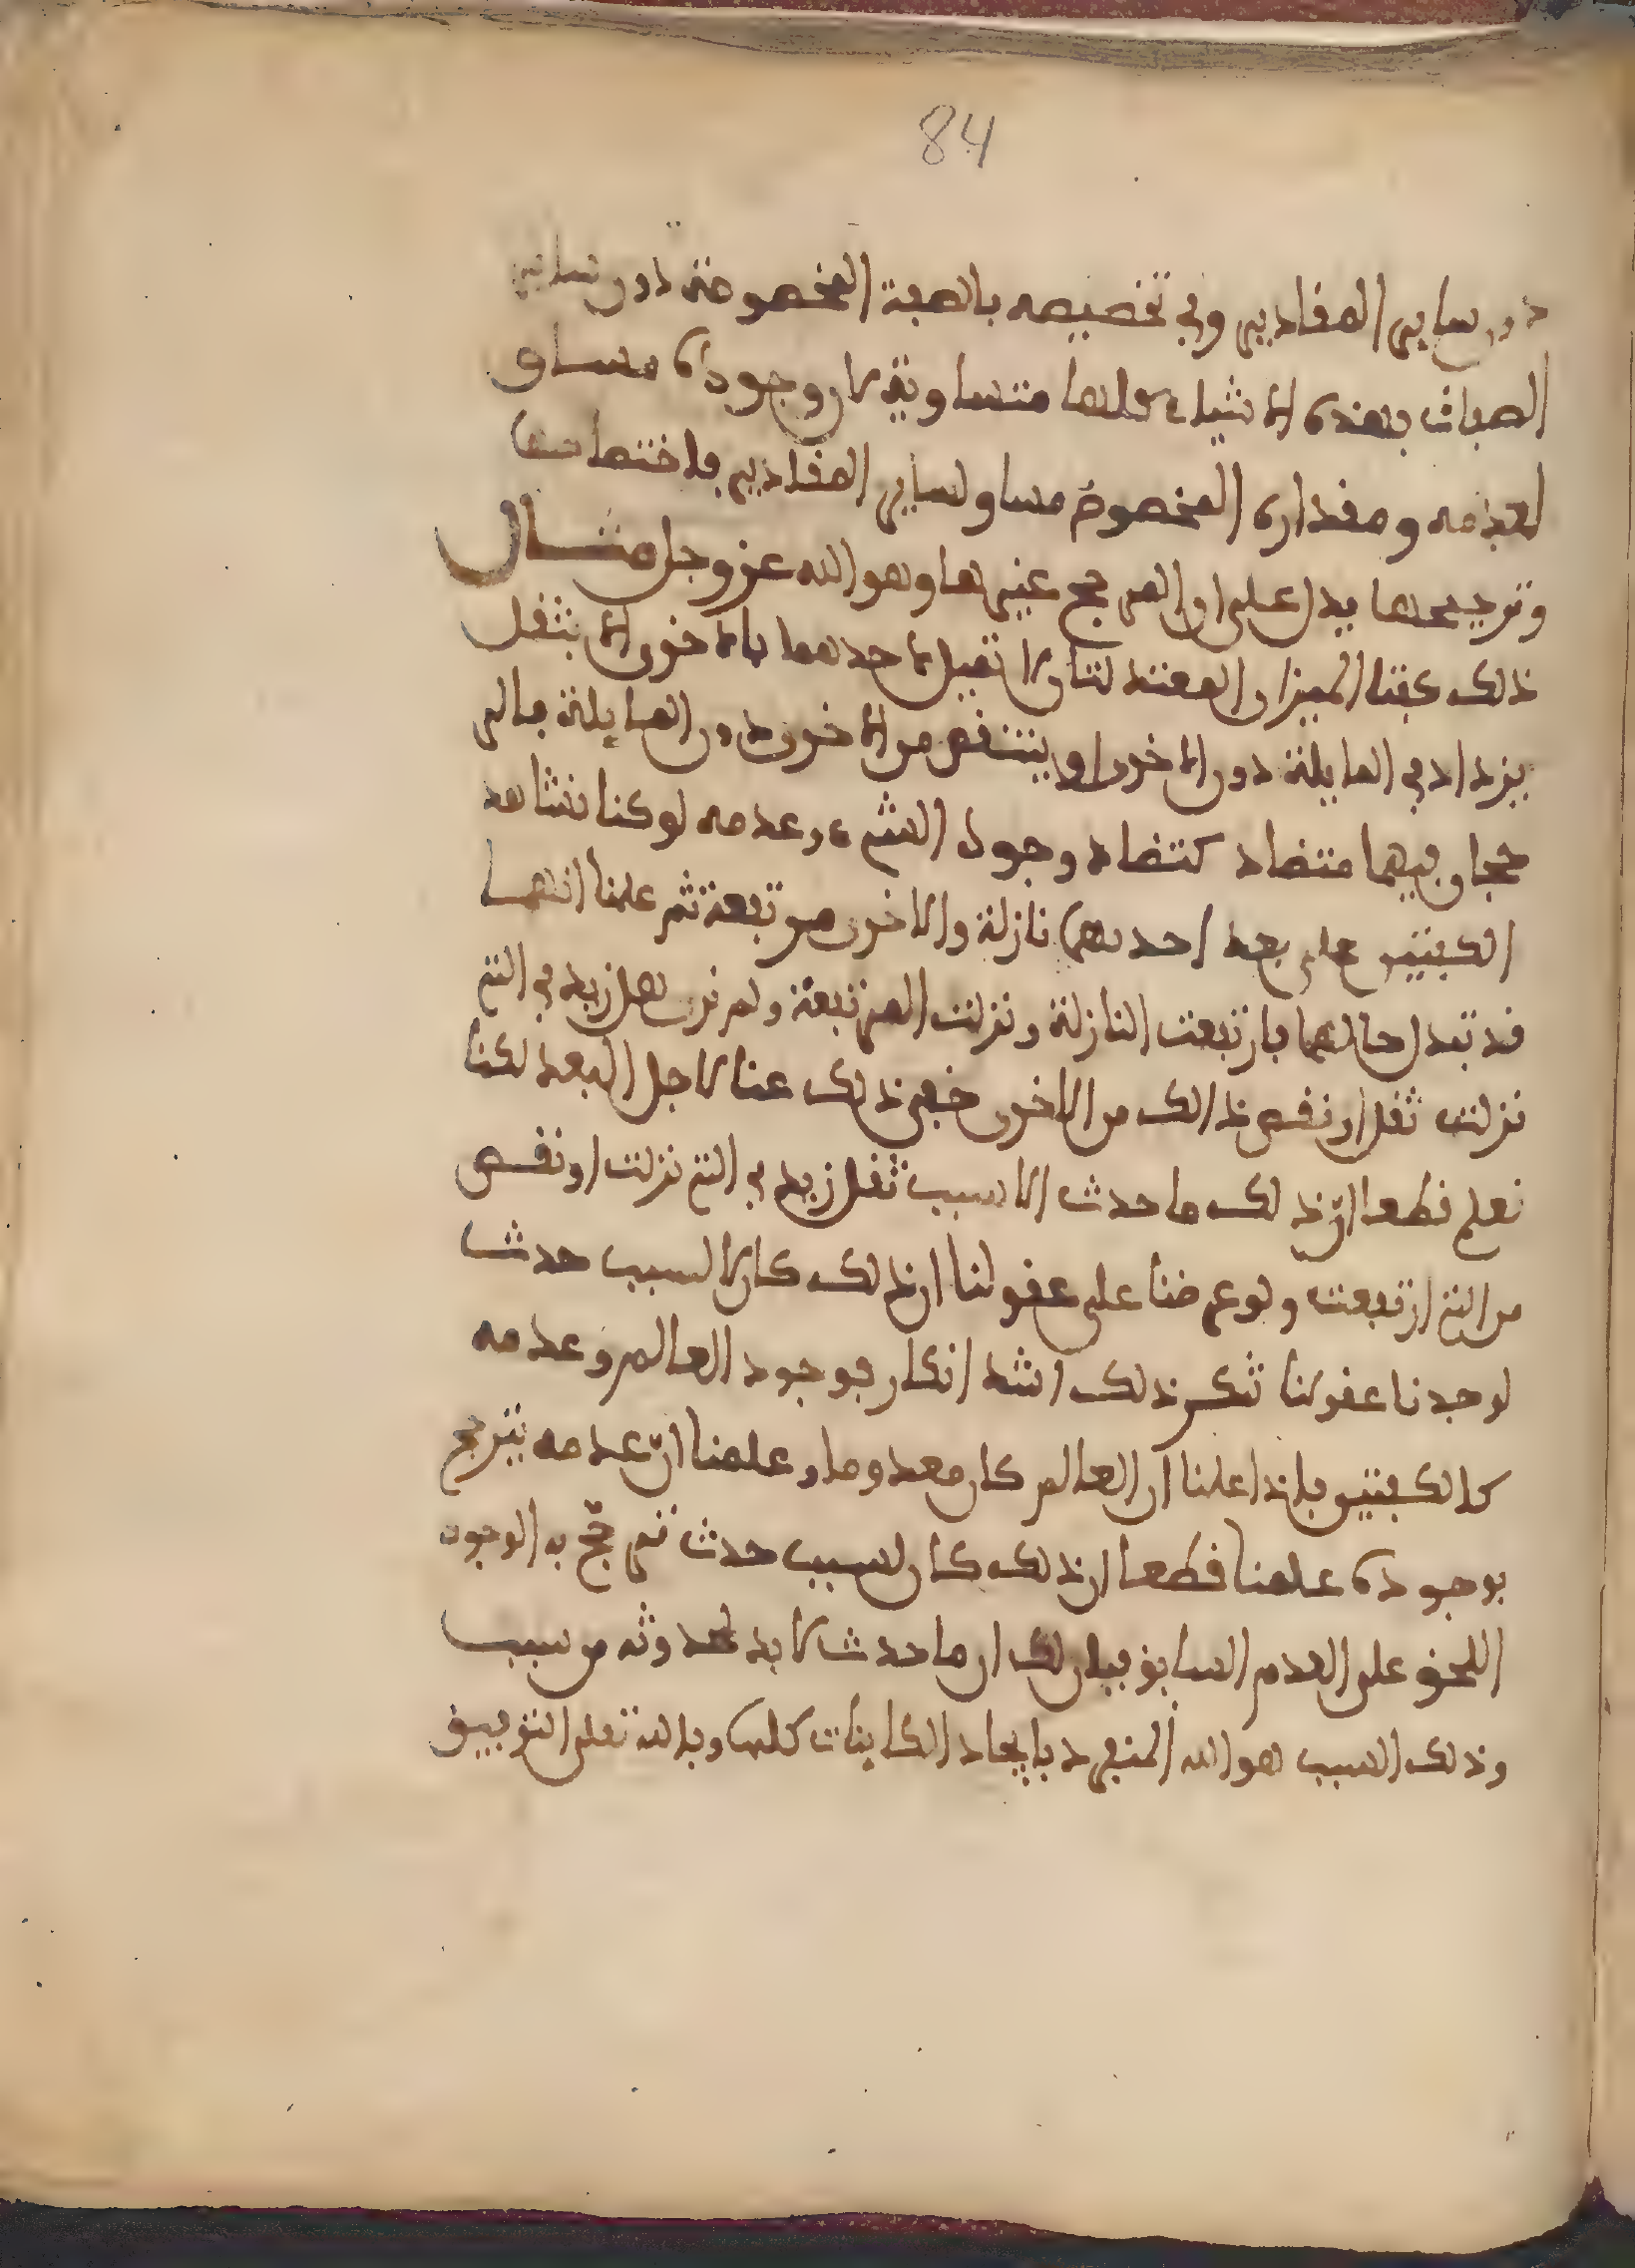 84
دون ساير المقادير وفي تخصيصه بالصفة المخصوصة دون ساير
الصفات فهذه الاشياء كلها متساوية لان وجوده مساو
لعدمه ومقداره المخصوص مساو لساير المقادير فاختصاصها
وترجيحها يدل على ان المرجح غيرها وهو الله عز وجل مثال
ذلك كفتا الميزان المعتدلتان لا تميل احدهما بالاخرى الا بثقل
يزداد في المايلة دون الاخرى او ينتقص من الاخرى دون المايلة فالر
جحان فيهما متضاد كتضاد وجود الشيء وعدمه لو كنا نشاهد
الكفتين على بعد احديهما نازلة والاخرى مرتفعة ثم علمنا انهما
قد تبدل حالهما فارتفعت النازلة ونزلت المرتفعة ولم نر هل زيد في التي
نزلت ثقل او نقص ذالك من الاخرى خفي ذلك عنا لاجل البعد لكنا
نعلم قطعا ان ذلك ما حدث الا بسبب ثقل زيد في التي نزلت او نقص
من التي ارتفعت ولو عرضنا على عقولنا ان ذلك كان لا لسبب حدث
لوجدنا عقولنا تنكر ذلك اشد انكار فوجود العالم وعدمه
كالكفتين فاذا علمنا ان العالم كان معدوما وعلمنا ان عدمه يترجح
بوجوده علمنا قطعا ان ذلك كان لسبب حدث ترجح به الوجود
اللحق على العدم السابق فبان لك ان ما حدث لا بد لحدوثه من سبب
وذلك السبب هو الله المنفرد بايجاد الكاينات كلها وبالله تعلى التوفيق